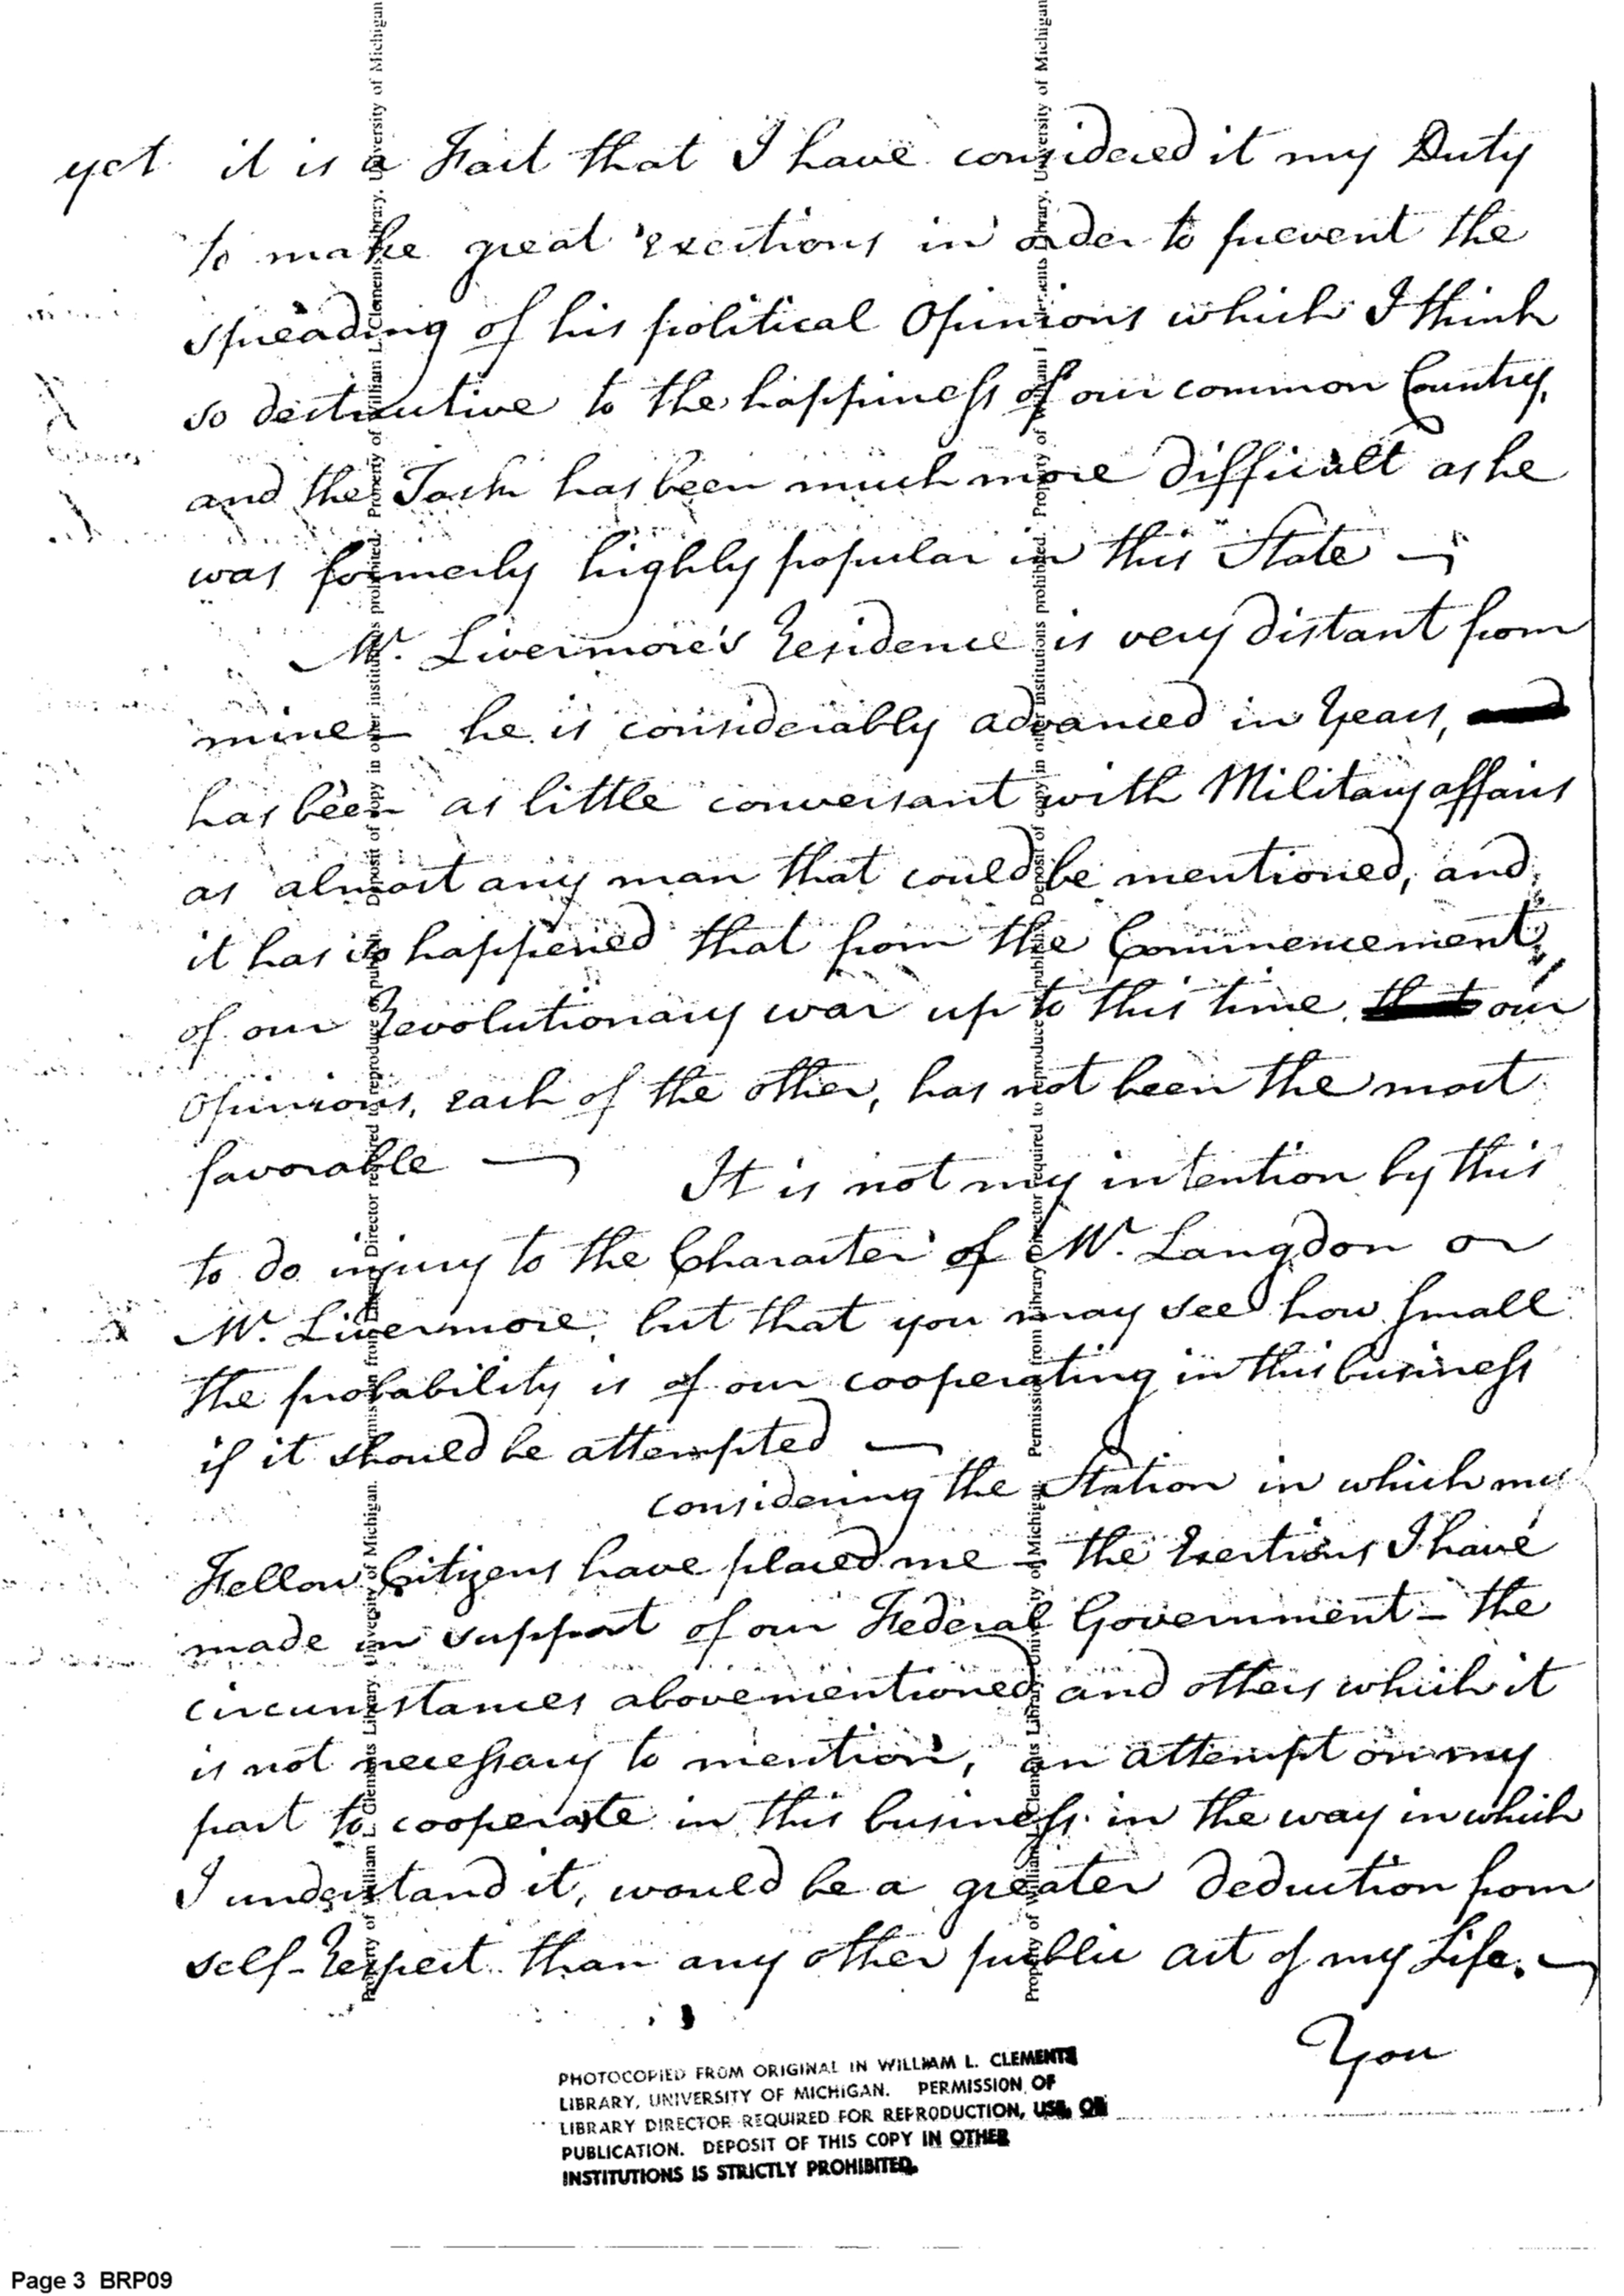 yet it is a Fact that I have considered it my Duty
to make great exertions in order to prevent the
spreading of his political Opinions which I think
so destructive to the happiness of our common Country,
and the Task has been much more difficult as he
was formerly highly popular in this State —
Mr. Livermore's Residence is very distant from
mine — he is considerably advanced in Years,
has been as little conversant with Military affairs
as almost any man that could be mentioned, and
it has so happened that from the Commencement
of our Revolutionary war up to this time our
Opinions, each of the other, has not been the most
favorable — It is not my intention by this
to do injury to the Character of Mr. Langdon or
Mr. Livermore, but that you may see how small
the probability is of our cooperating in this business
if it should be attempted —
considering the Station in which my
Fellow Citizens have placed me — the Exertions I have
made in support of our Federal Government — the
circumstances abovementioned and others which it
is not necessary to mention, an attempt on my
part to cooperate in this business in the way in which
I understand it, would be a greater deduction from
self-Respect than any other public act of my Life. —
You
PHOTOCOPIED FROM ORIGINAL IN WILLIAM L. CLEMENTS
LIBRARY, UNIVERSITY OF MICHIGAN. PERMISSION OF
LIBRARY DIRECTOR REQUIRED FOR REPRODUCTION, USE, OR
PUBLICATION. DEPOSIT OF THIS COPY IN OTHER
INSTITUTIONS IS STRICTLY PROHIBITED.
Page 3 BRP09